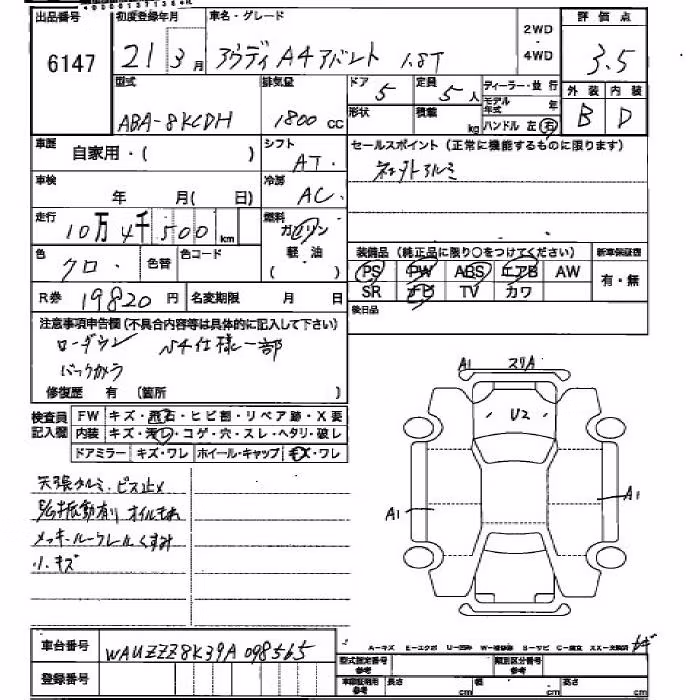 出品番号 初度登録年月 車名・グレード 2WD 評価点
6147 21 3月 アウディ A4アバント 1.8T 4WD 3.5
型式 排気量 ドア 定員 ディーラー・並行 外装 内装
ABA-8KCDH 1800cc 5 5人 モデル年式 年 B D
形状 積載 kg ハンドル 左 右
車歴 自家用・( ) シフト AT. セールスポイント(正常に機能するものに限ります)
車検 年 月( 日) 冷房 AC. 社外アルミ
走行 10万4千500km 燃料 ガソリン
軽油
( )
色 クロ・ 色替 色コード 装備品(純正品に限り○をつけてください) 新車保証書
PS PW ABS エアB AW 有・無
R券 19820円 名変期限 月 日 SR ナビ TV カワ
後日品
注意事項申告欄(不具合内容等は具体的に記入して下さい)
ローダウン S4仕様一部
バックカメラ
修復歴 有(箇所 )
A1 スリA
検査員記入欄 FW キズ・飛石・ヒビ割・リペア跡・X要
内装 キズ・汚レ・コゲ・穴・スレ・ヘタリ・破レ
ドアミラー キズ・ワレ ホイール・キャップ キズ・ワレ
U2
天張タルミ・ビス止メ
振動有り オイルモレ
A1 A1
メッキ・ルーフレールくすみ
小キズ
車台番号 WAUZZZ8K39A098565
A-キズ E-エクボ U-凹み W-補修跡 S-サビ C-腐食 XX-交換済
登録番号 型式指定番号 参考 類別区分番号 参考
車庫証明用 参考 長さ cm 幅 cm 高さ cm